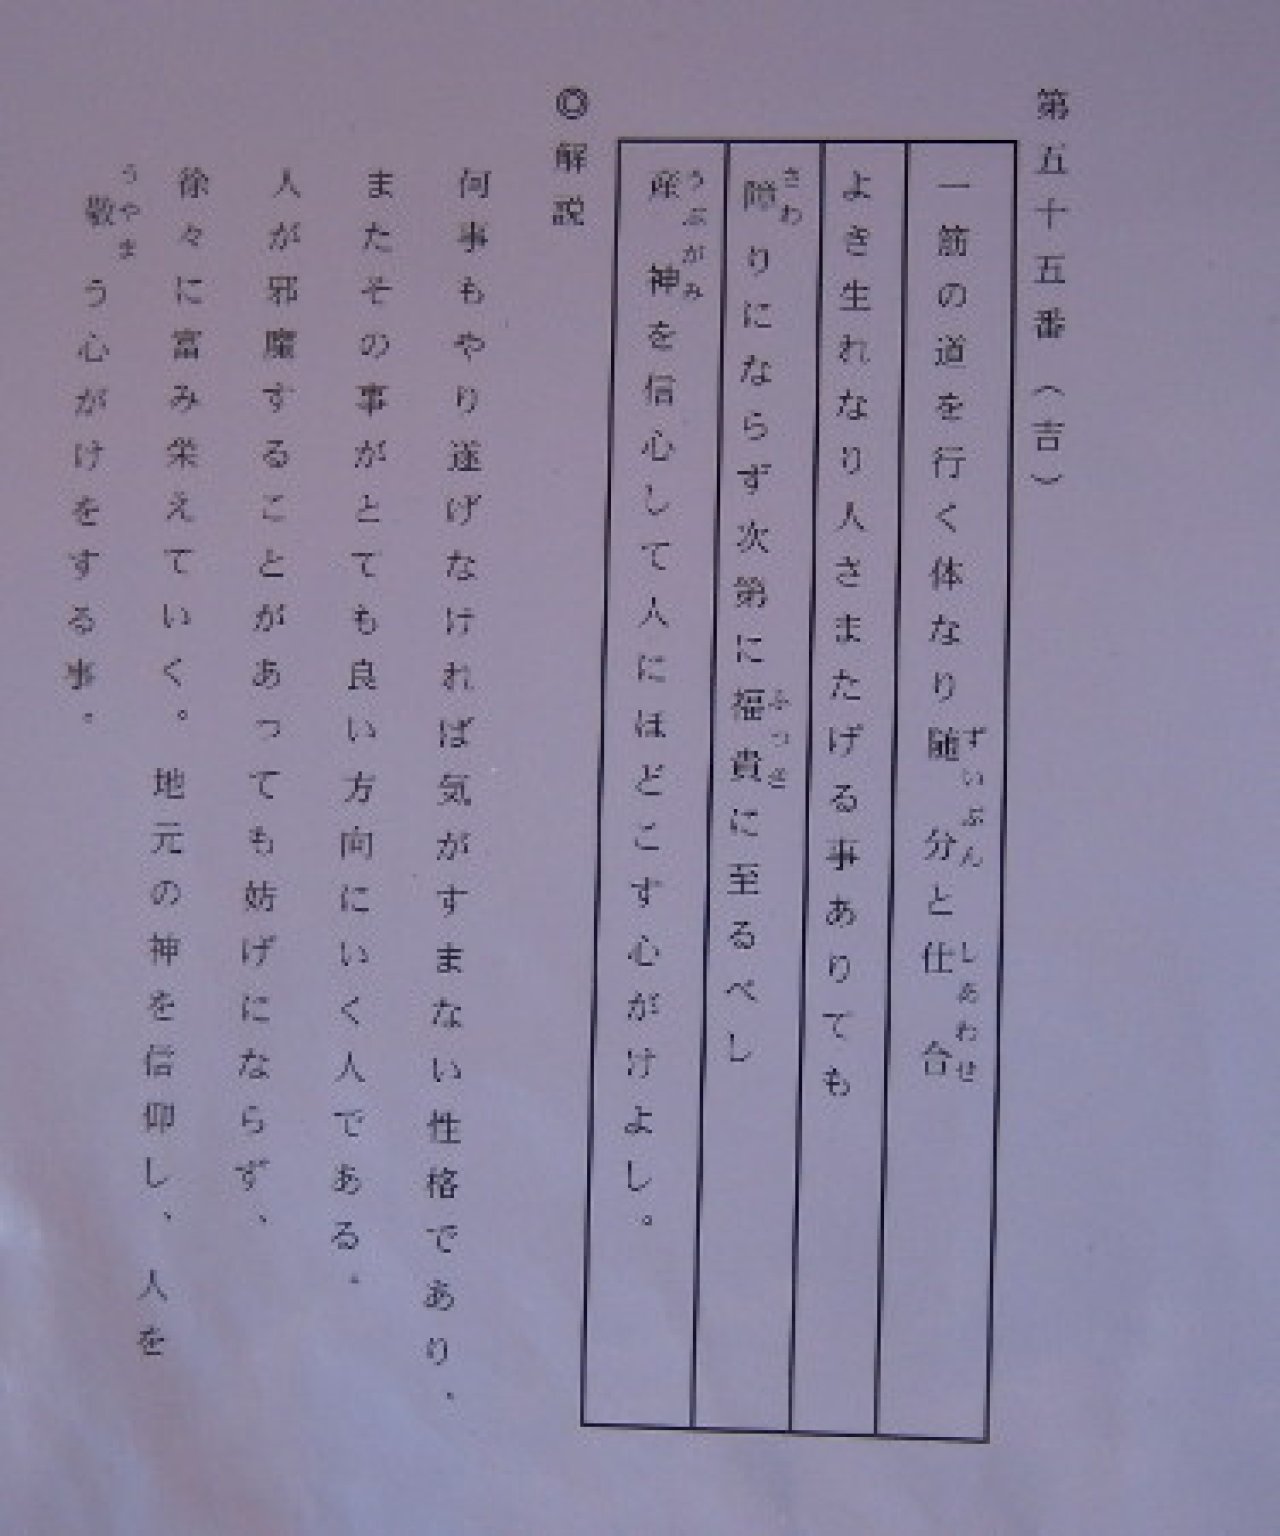 第五十五番（吉）
一筋の道を行く体なり随分と仕合
よき生れなり人さまたげる事ありても
障りにならず次第に福貴に至るべし
産神を信心して人にほどこす心がけよし。
◎解説
何事もやり遂げなければ気がすまない性格であり、
またその事がとても良い方向にいく人である。
人が邪魔することがあっても妨げにならず、
徐々に富み栄えていく。地元の神を信仰し、人を
敬う心がけをする事。